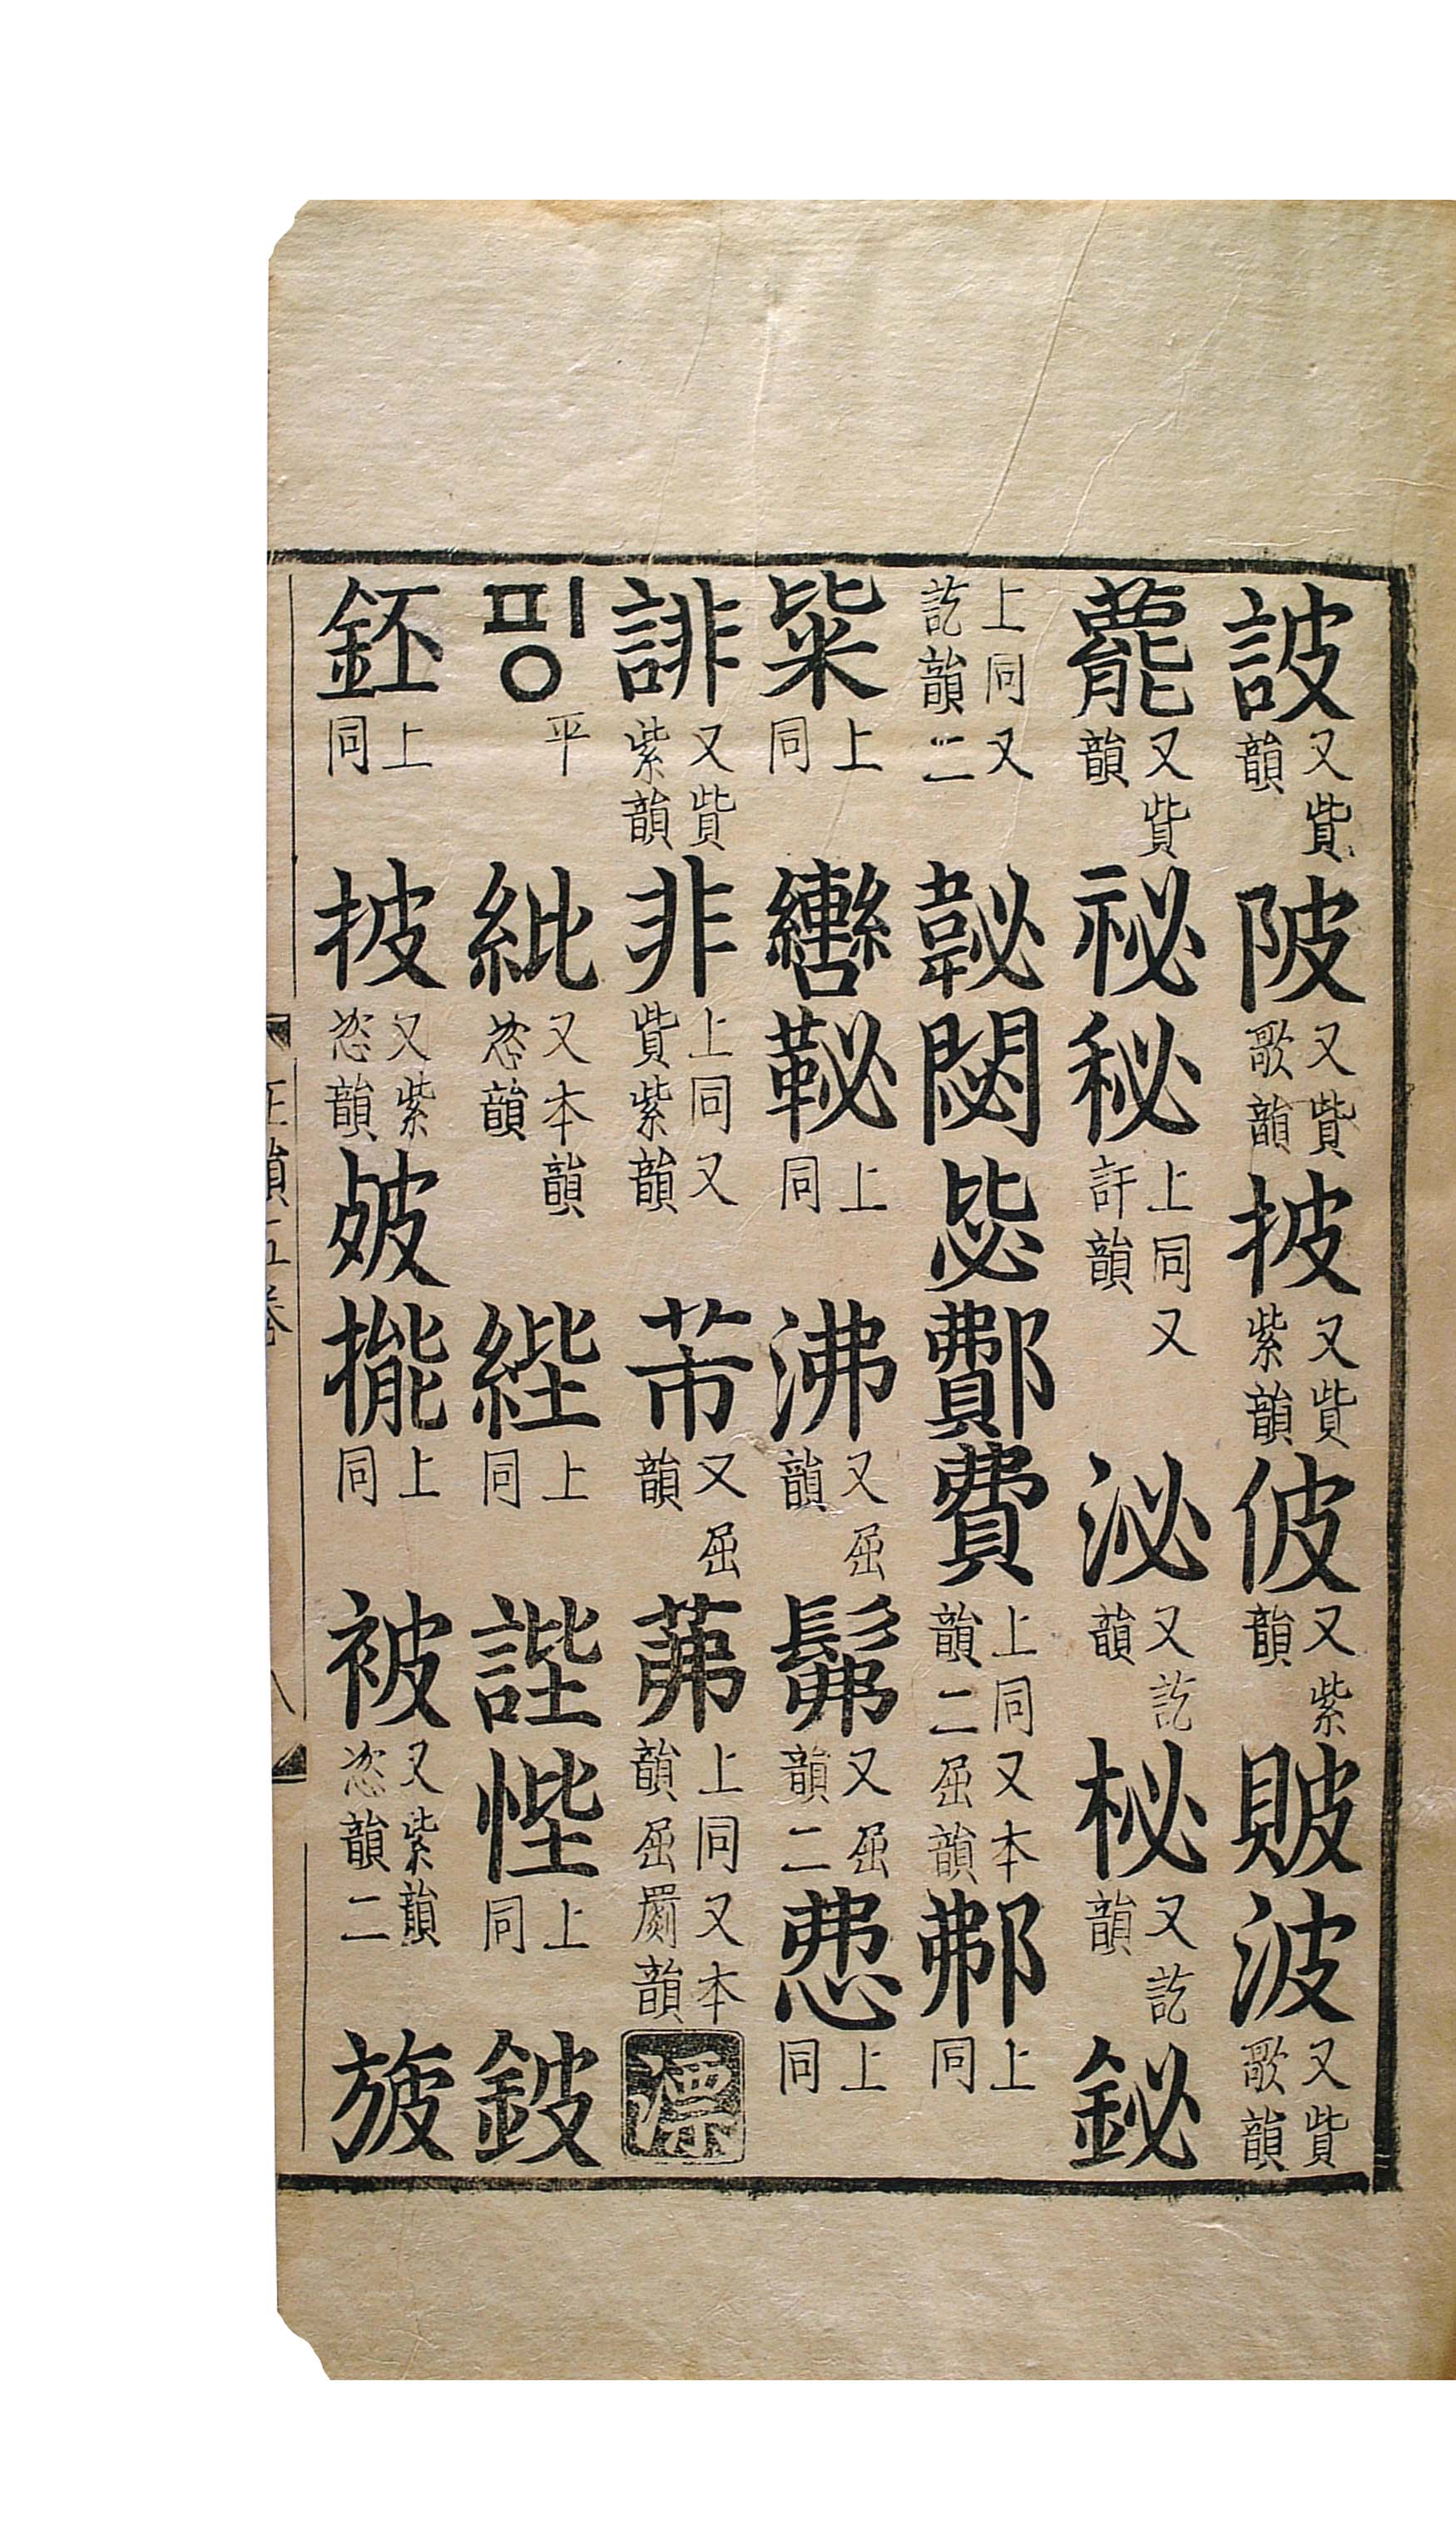 詖又貲韻陂又貲歌韻披又貲紫韻佊又紫韻貱波又貲歌韻
藣又貲韻祕秘上同又訐韻泌又訖韻柲又訖韻鉍
上同又訖韻二䪐閟毖鄪費上同又本韻二屈韻䣡上同
粊上同轡䩛上同沸又屈韻髴又屈韻二上同
誹又貲紫韻非上同又貲紫韻芾又屈韻茀上同又本韻屈韻漂
핑平紕又本韻恣韻䋔上同䛗悂上同鈹
鉟上同披又紫恣韻㱟㩺上同被又紫韻恣韻二旇